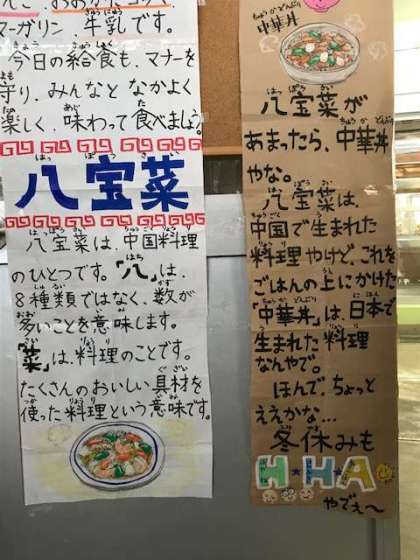 マーガリン 牛乳です。
今日の給食も、マナーを
守り、みんなと なかよく
楽しく、味わって食べましょう。
八宝菜
八宝菜は、中国料理
のひとつです。「八」は、
8種類ではなく、数が
多いことを意味します。
「菜」は、料理のことです。
たくさんのおいしい具材を
使った料理という意味です。
中華丼
八宝菜が
あまったら、中華丼
やな。
八宝菜は、
中国で生まれた
料理やけど、これを
ごはんの上にかけた
「中華丼」は、日本で
生まれた料理
なんやで。
ほんで、ちょっと
ええかな…
冬休みも
H★H★A
やでぇ〜